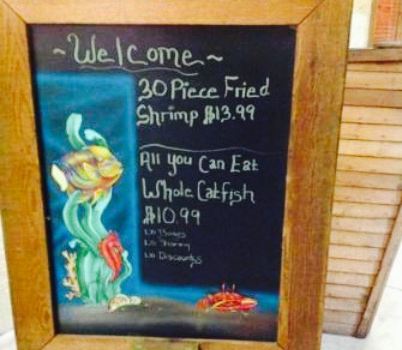 ~Welcome~
30 Piece Fried
Shrimp $13.99
All you Can Eat
Whole Catfish
$10.99
No Boxes
No Sharing
No Discounts